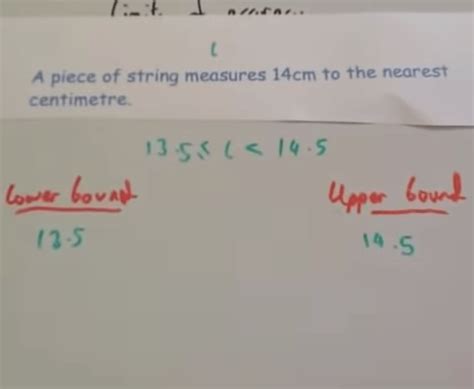 limit of accurac..
l
A piece of string measures 14cm to the nearest
centimetre.
13.5 ≤ l < 14.5
Lower bound
Upper bound
13.5
14.5